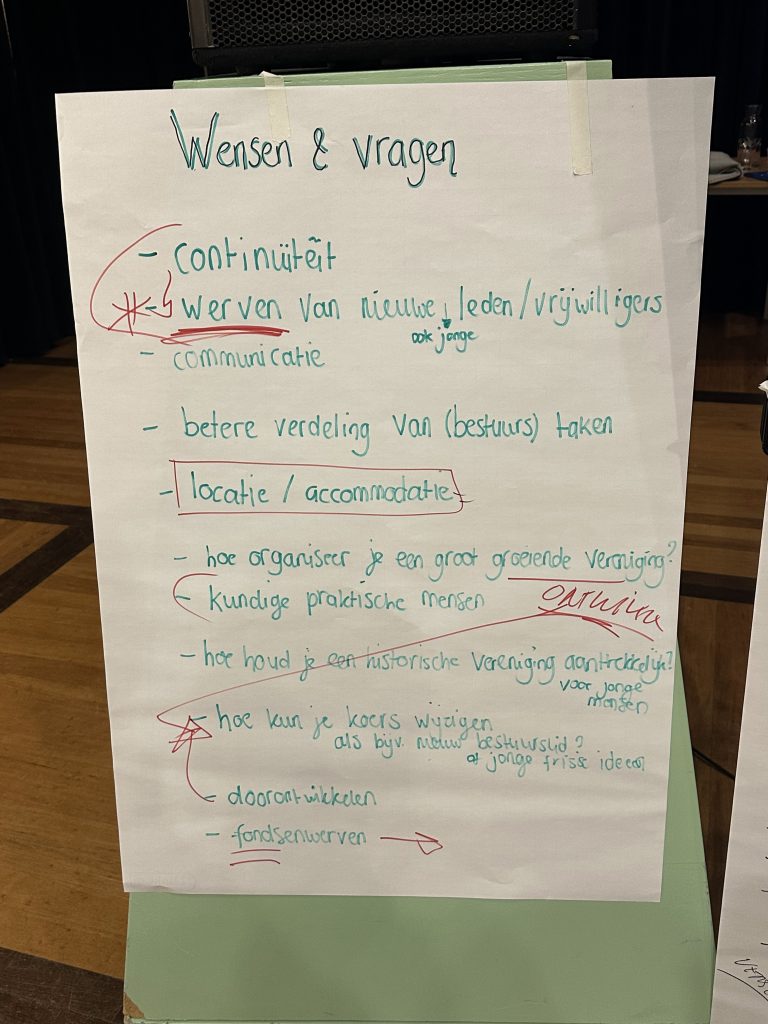 Wensen & vragen
- continuïteit
- werven van nieuwe leden/vrijwilligers
ook jonge
- communicatie
- betere verdeling van (bestuurs) taken
- locatie / accommodatie
- hoe organiseer je een groot groeiende vereniging?
- kundige praktische mensen
- hoe houd je een historische vereniging aantrekkelijk?
voor jonge
mensen
- hoe kun je koers wijzigen
als bijv. nieuw bestuurslid?
of jonge frisse ideeën
- doorontwikkelen
- fondsenwerven